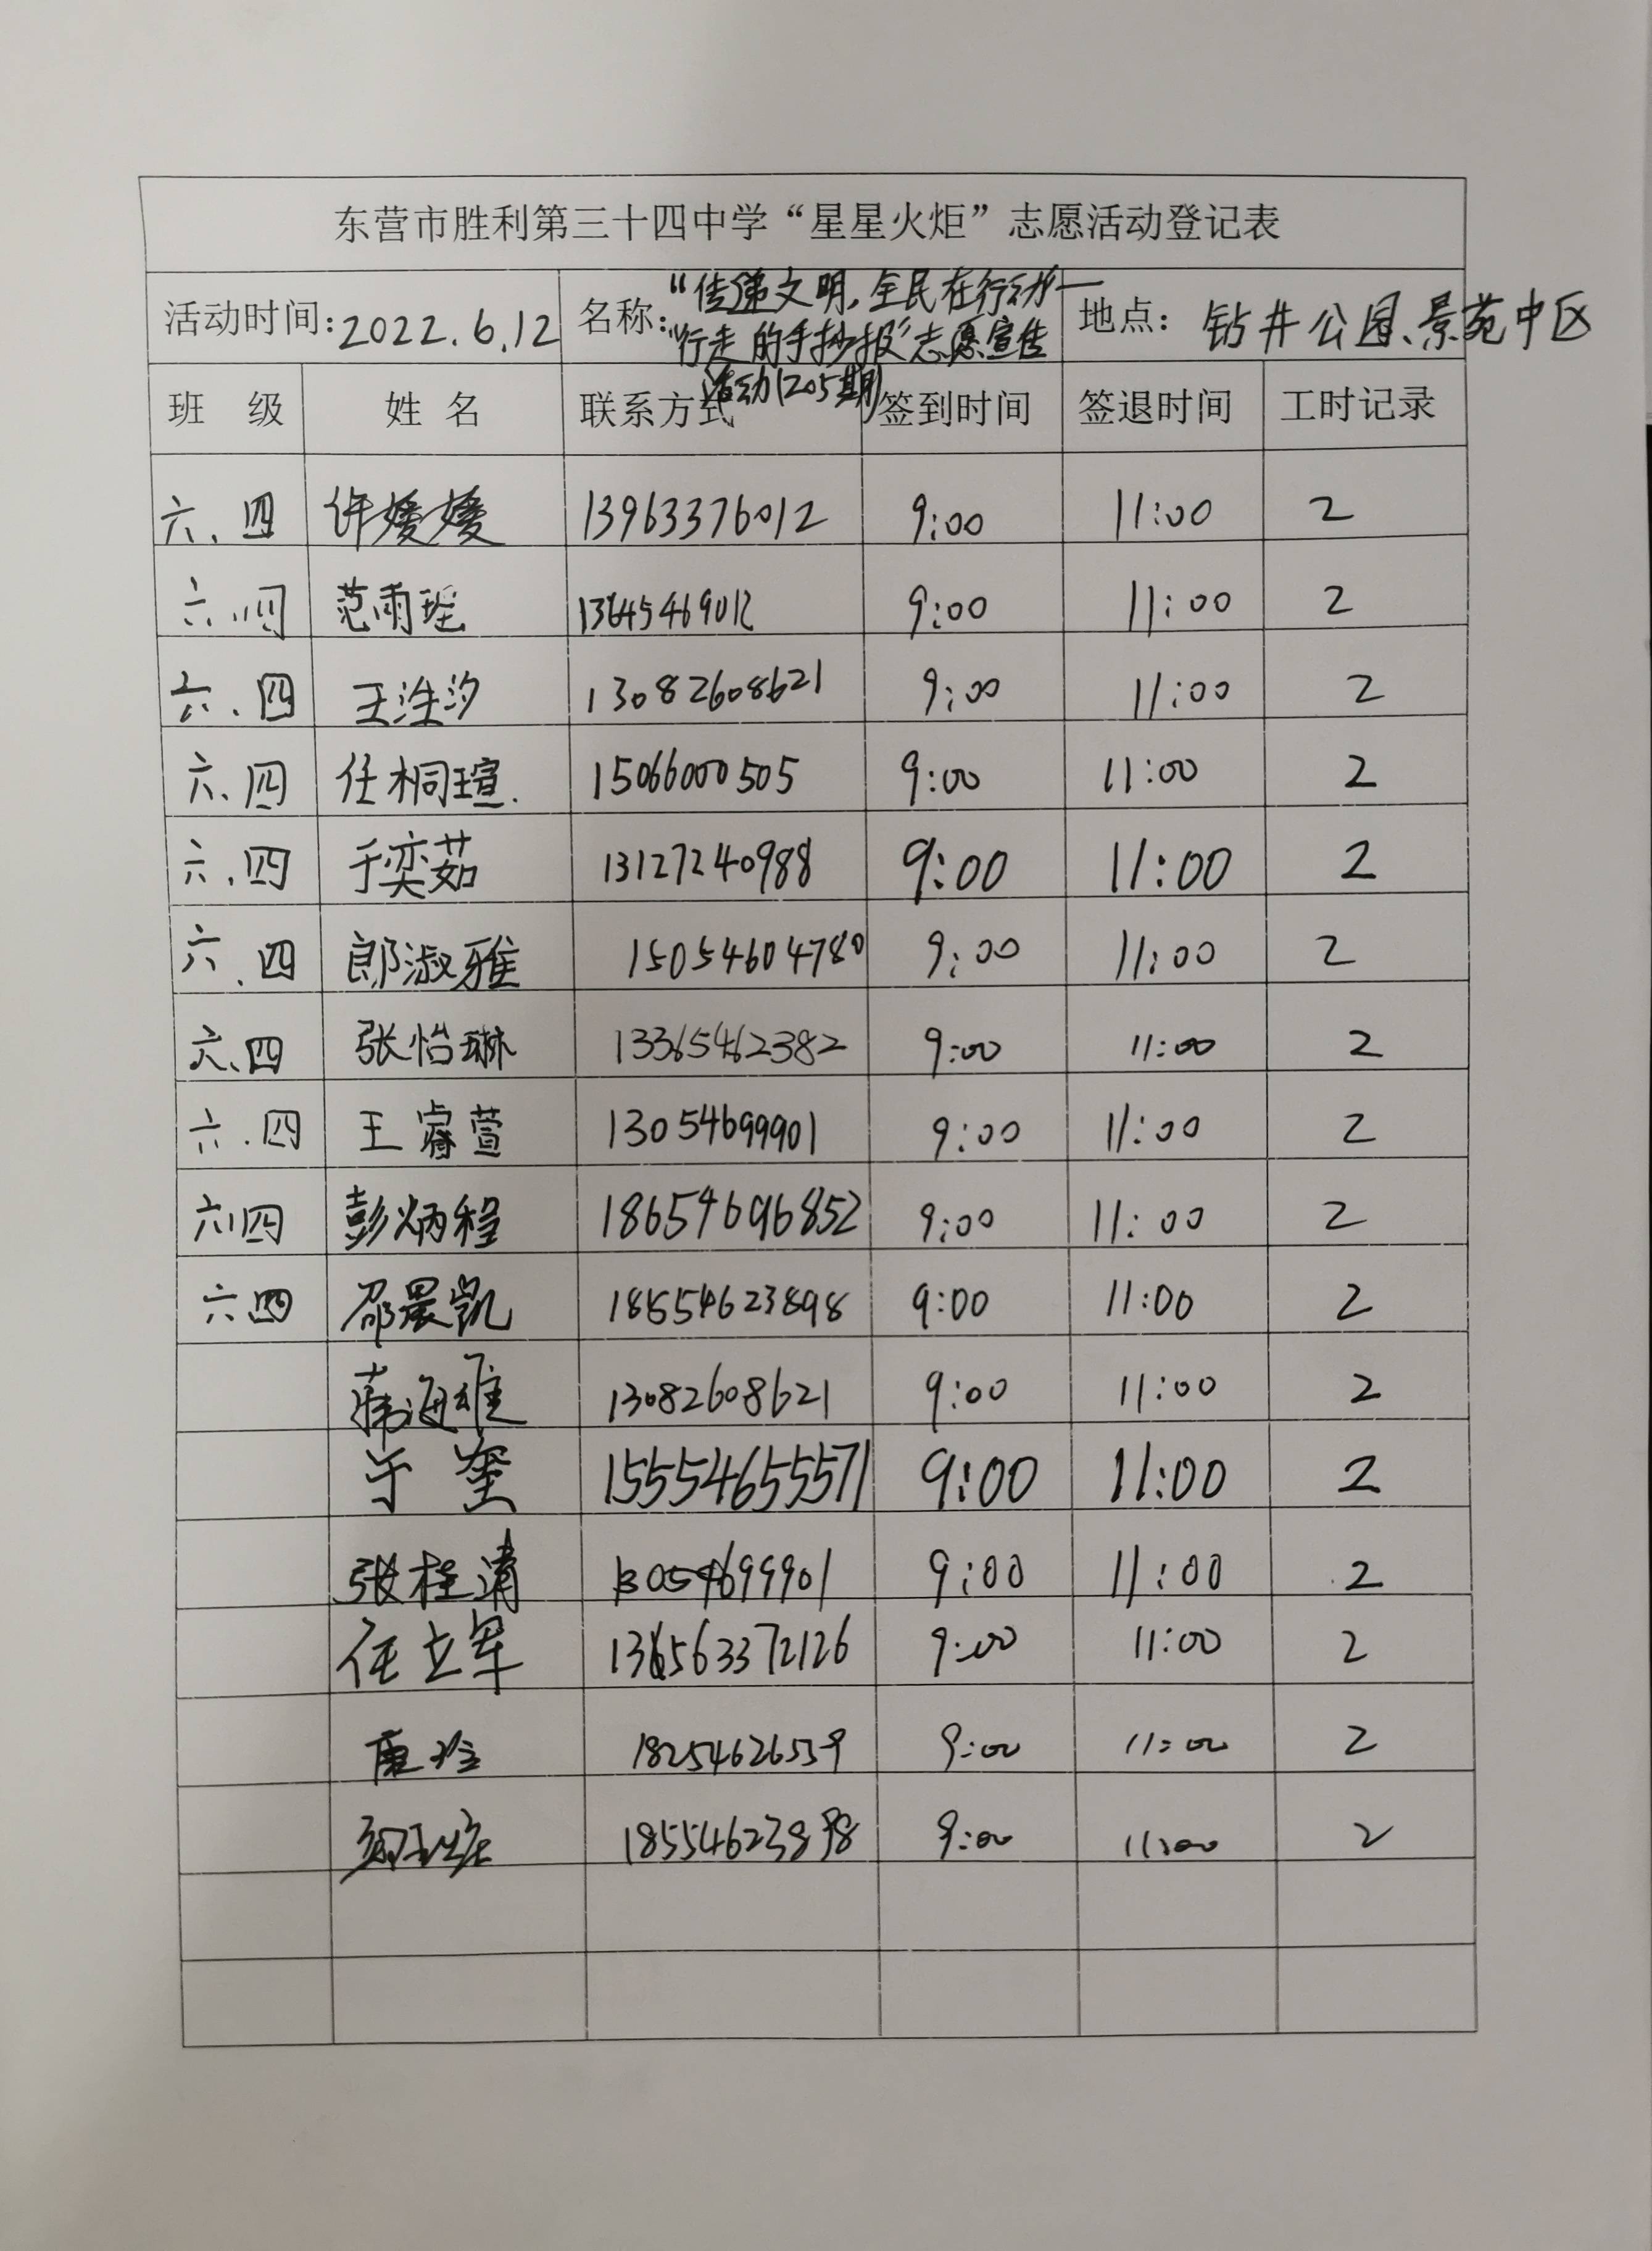 东营市胜利第三十四中学“星星火炬”志愿活动登记表
活动时间：2022.6.12 名称：“传递文明，全民在行动”— 地点：钻井公园、景苑中区
“行走的手抄报”志愿宣传
活动（205期）
班 级 姓 名 联系方式 签到时间 签退时间 工时记录
六.四 许媛媛 13963376012 9:00 11:00 2
六.四 范雨瑶 13645469012 9:00 11:00 2
六.四 王泩汐 13082608621 9:00 11:00 2
六.四 任桐瑄 15066000505 9:00 11:00 2
六.四 于奕茹 13127240988 9:00 11:00 2
六.四 郎淑雅 15054604780 9:00 11:00 2
六.四 张怡琳 13365462382 9:00 11:00 2
六.四 王睿萱 13054699901 9:00 11:00 2
六.四 彭炳程 18654696852 9:00 11:00 2
六.四 邵晨凯 18554623898 9:00 11:00 2
13082608621 9:00 11:00 2
于奎 15554655571 9:00 11:00 2
张桂清 13054699901 9:00 11:00 2
任立军 9:00 11:00 2
18254626539 9:00 11:00 2
18554623898 9:00 11:00 2